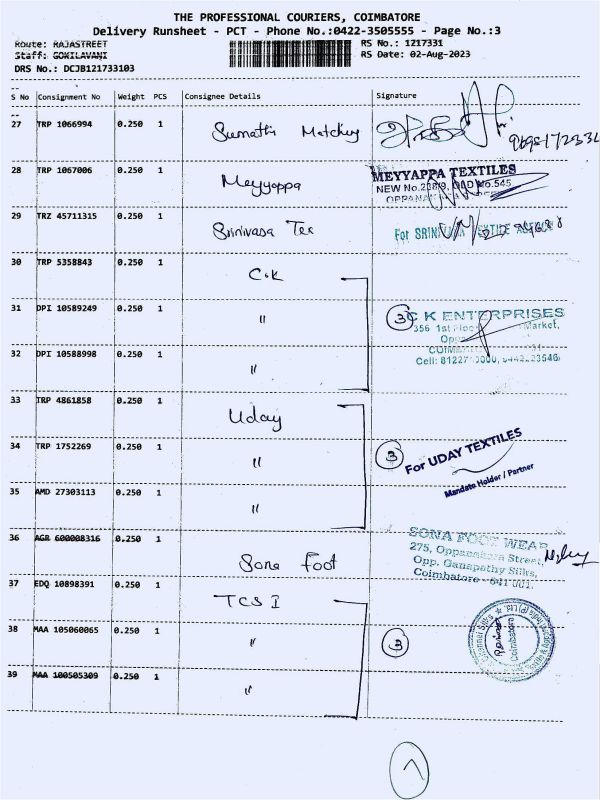 THE PROFESSIONAL COURIERS, COIMBATORE
Delivery Runsheet - PCT - Phone No.:0422-3505555 - Page No.:3
Route: RAJASTREET
RS No.: 1217331
Staff: GOKILAVANI
RS Date: 02-Aug-2023
DRS No.: DCJB121733103
S No Consignment No Weight PCS Consignee Details Signature
27 TRP 1066994 0.250 1 Sumathi Matching
28 TRP 1067006 0.250 1 Meyyappa
MEYYAPPA TEXTILES
NEW No.238/9, OLD No.545
29 TRZ 45711315 0.250 1 Srinivasa Tex
30 TRP 5358843 0.250 1 C.K
31 DPI 10589249 0.250 1 "
3
C K ENTERPRISES
356 1st Floor Market,
32 DPI 10588998 0.250 1 "
33 TRP 4861858 0.250 1 Uday
34 TRP 1752269 0.250 1 "
3
For UDAY TEXTILES
Mandate Holder / Partner
35 AMD 27303113 0.250 1 "
36 AGR 600008316 0.250 1 Sona Foot
SONA FOOT WEAR
275, Oppanakara Street,
Opp. Ganapathy Silks,
Coimbatore - 641 001.
37 EDQ 10898391 0.250 1 TCS I
38 MAA 105060065 0.250 1 "
3
Coimbatore
39 MAA 100505309 0.250 1 "